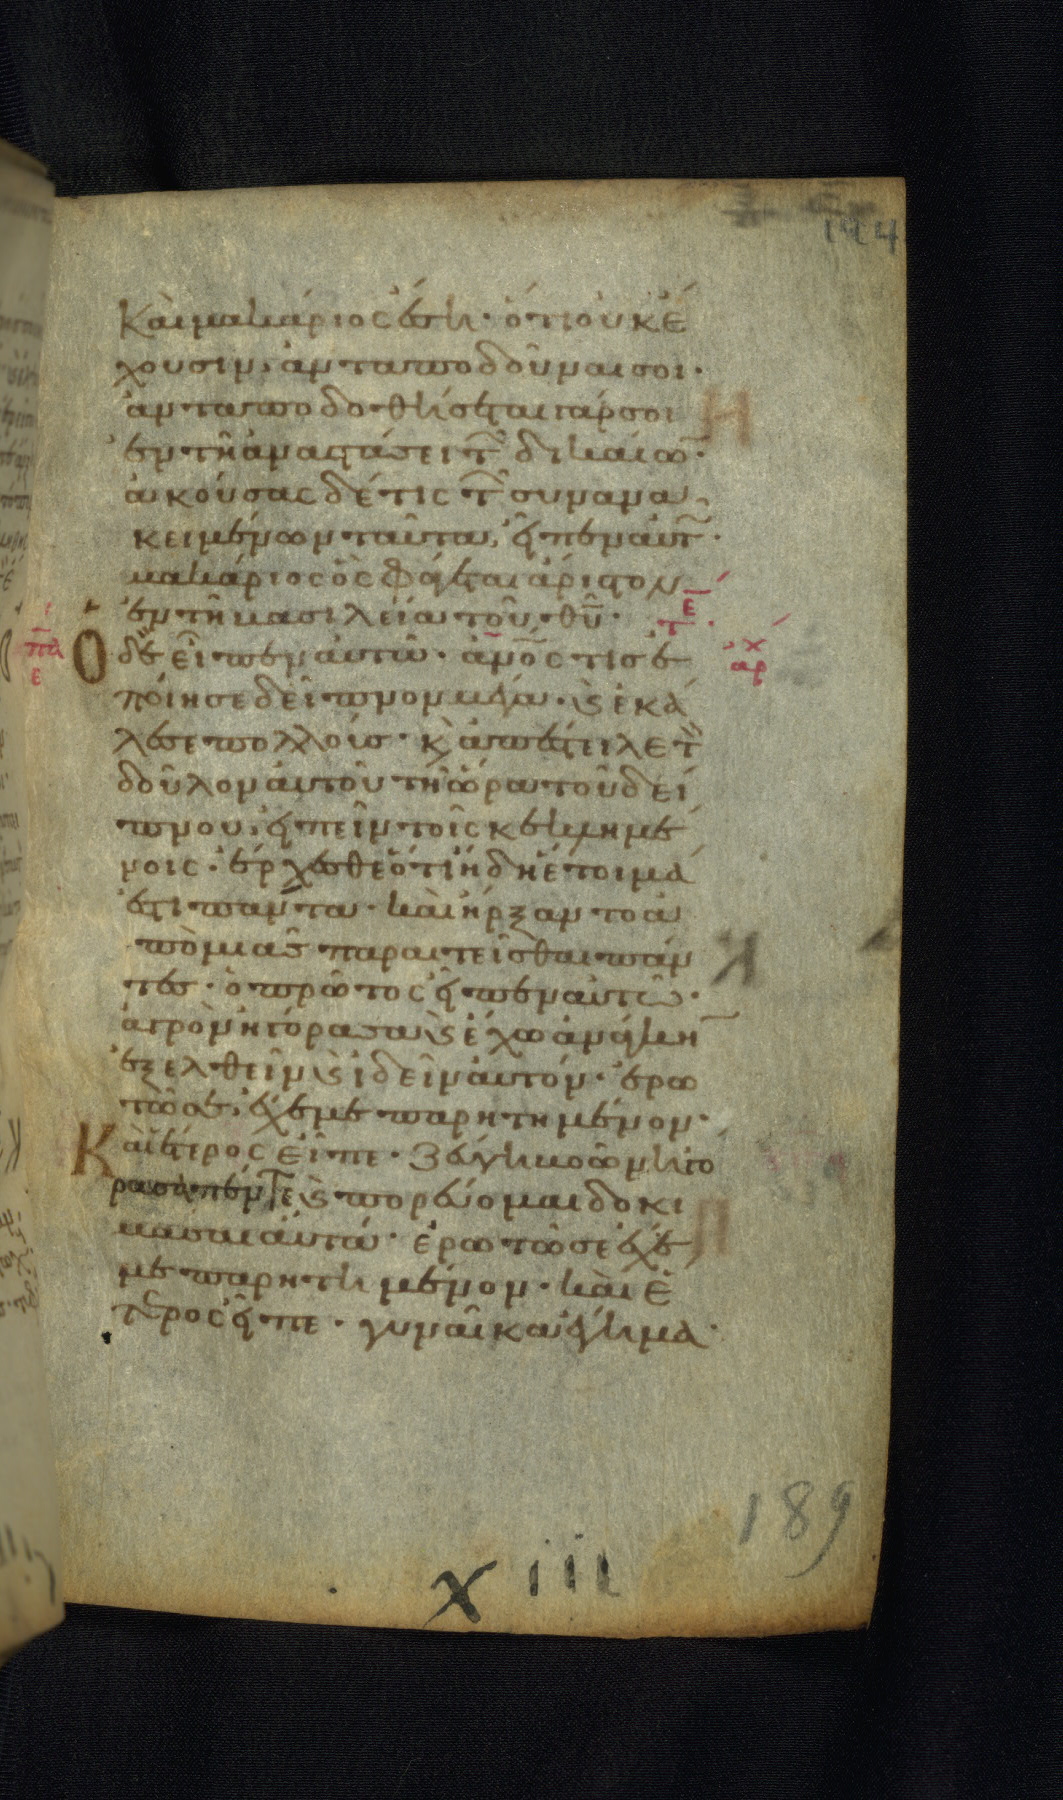 144
Και μακάριος έση· ότι ουκ έ
χουσιν ανταποδούναι σοι·
ανταποδοθήσεται γάρ σοι
εν τη αναστάσει τ̃ δικαίω̃·
ακούσας δέ τις τ̃ συνανα
κειμένων ταύτα, είπεν αυτ̃·
μακάριος ός φάγεται άριστον
εν τη βασιλεία του θυ̅·
Ο δε είπεν αυτώ· α̅νο̅ς τις ε
ποίησε δείπνον μέγα· ϗ εκά
λεσε πολλούς· ϗ απέστειλε τ̀
δούλον αυτού τη ώρα του δεί
πνου, ειπείν τοις κεκλημέ
νοις· έρχεσθε ότι ήδη έτοιμά
εστι πάντα· και ήρξαντο α
πὸ μιας παραιτείσθαι πάν
τες· ο πρώτος είπεν αυτώ·
αγρὸν ηγόρασα ϗ έχω ανάγκη̅
εξελθείν ϗ ιδείν αυτόν· ερω
τώ σε, έχε με παρητημένον·
Και έτερος είπε· ζεύγη βοών ηγό
ρασα πέντε ϗ πορεύομαι δοκι
μάσαι αυτά· ερωτώ σε έχε
με παρητημένον· και έ
τερος είπε· γυναίκα έγημα·
189
xiii